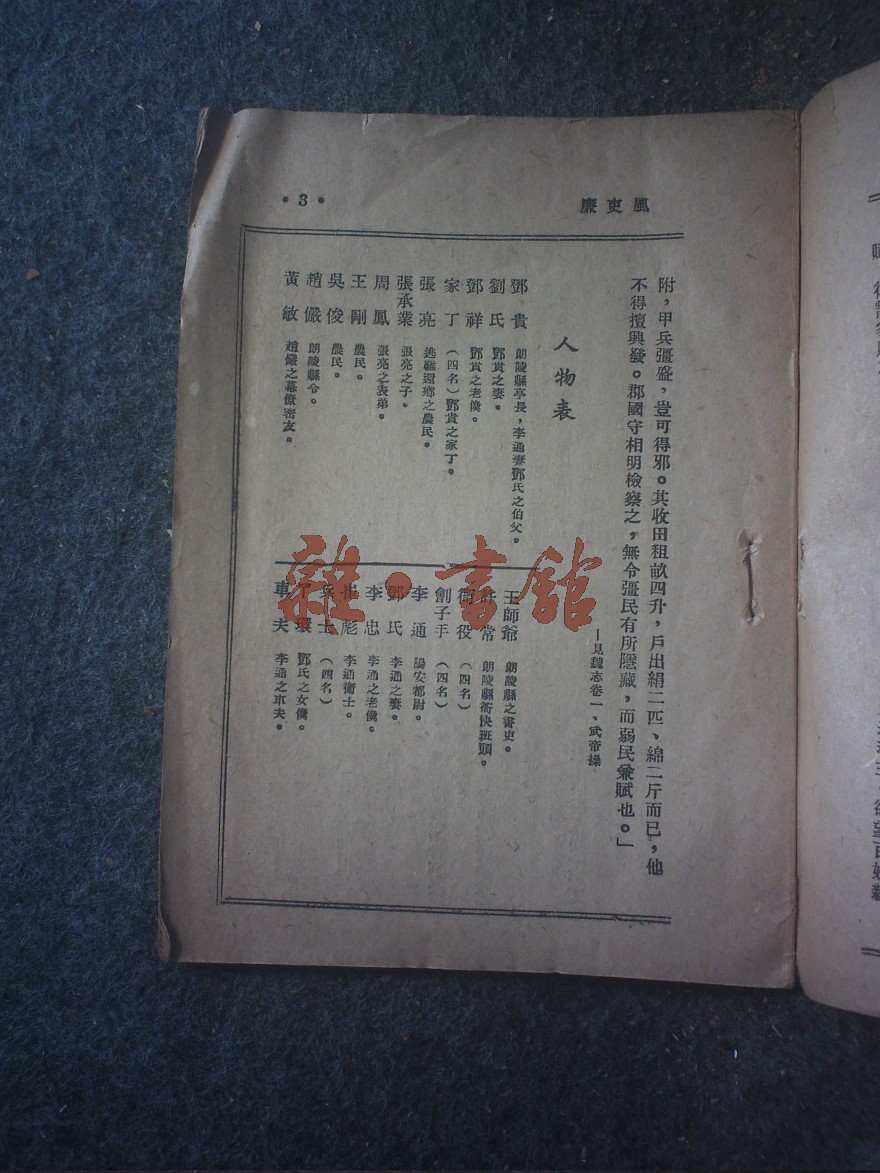 風吏廉
•3•
附，甲兵彊盛，豈可得邪。其收田租畝四升，戶出絹二匹、綿二斤而已，他
不得擅興發。郡國守相明檢察之，無令彊民有所隱藏，而弱民兼賦也。」
—見魏志卷一、武帝操
人物表
鄧貴 朗陵縣亭長，李通妻鄧氏之伯父。
劉氏 鄧貴之妻。
鄧祥 鄧貴之老僕。
家丁 （四名）鄧貴之家丁。
張亮 逃難還鄉之農民。
張承業 張亮之子。
周鳳 張亮之表弟。
王剛 農民。
吳俊 農民。
趙儼 朗陵縣令。
黃敏 趙儼之幕僚密友。
王師爺 朗陵縣之書吏。
許常 朗陵縣衙快班頭。
衙役 （四名）
劊子手 （四名）
李通 陽安都尉。
鄧氏 李通之妻。
李忠 李通之老僕。
崔彪 李通衛士。
兵士 （四名）
丫環 鄧氏之女僕。
車夫 李通之車夫。
雜•書館